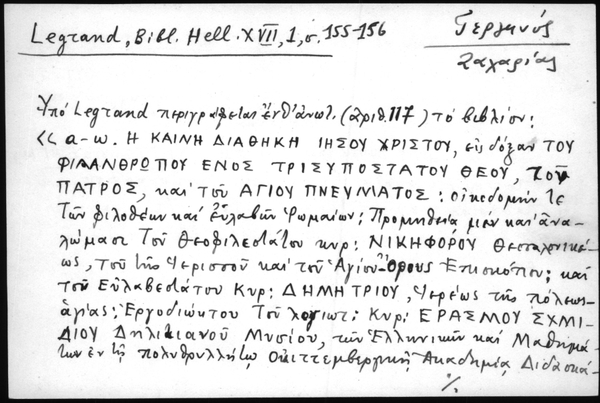 Legrand, Bibl. Hell. XVII, 1, σ. 155-156
Γεργανός
Ζαχαρίας
Ὑπό Legrand περιγράφεται ἐνθ' ἀνωτ. (ἀριθ. 117) τό βιβλίον:
<< α-ω. Η ΚΑΙΝΗ ΔΙΑΘΗΚΗ ΙΗΣΟΥ ΧΡΙΣΤΟΥ, εἰς δόξαν ΤΟΥ
ΦΙΛΑΝΘΡΩΠΟΥ ΕΝΟΣ ΤΡΙΣΥΠΟΣΤΑΤΟΥ ΘΕΟΥ, ΤΟΥ
ΠΑΤΡΟΣ, καί τοῦ ΑΓΙΟΥ ΠΝΕΥΜΑΤΟΣ: οἰκοδομήν τε
Τῶν φιλοθέων καί εὐλαβῶν Ῥωμαίων: Προμηθείᾳ μέν καί ἀνα-
λώμασι Τοῦ Θεοφιλεστάτου κυρ: ΝΙΚΗΦΟΡΟΥ Θεσσαλονικέ-
ως, τοῦ τῆς Ἱερισσοῦ καί τοῦ Ἁγίου Ὄρους Ἐπισκόπου; καί
τοῦ Εὐλαβεστάτου Κυρ: ΔΗΜΗΤΡΙΟΥ, Ἱερέως τῆς πόλεως
ἁγίας; Ἐργοδιώκτου Τοῦ λογιωτ: Κυρ: ΕΡΑΣΜΟΥ ΣΧΜΙ-
ΔΙΟΥ Δηλιτιανοῦ Μυσίου, τῶν Ἑλληνικῶν καί Μαθημά-
των ἐν τῇ πολυθρυλλήτῳ Οὐιττεμβεργικῇ Ἀκαδημίᾳ Διδασκά-
./.